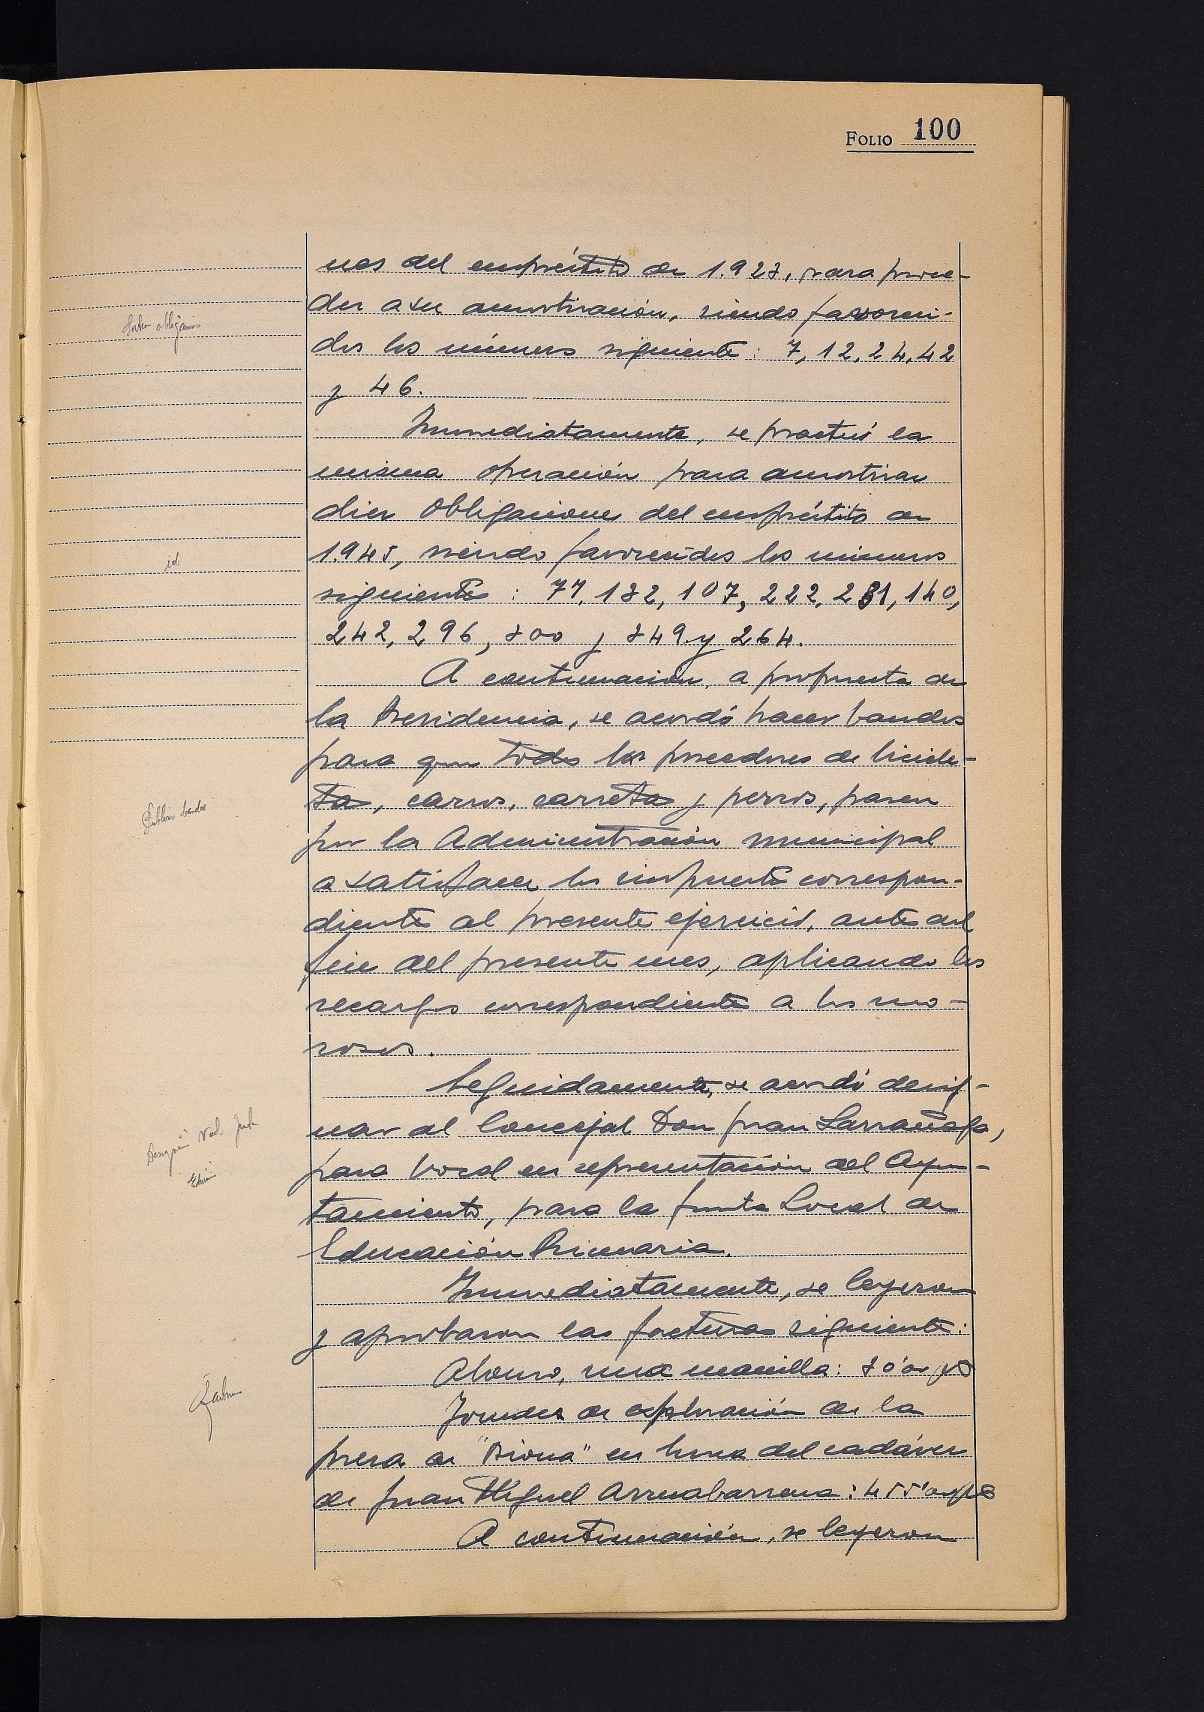 FOLIO 100
nes del empréstito de 1.923, para proce-
der a su amortización, siendo favoreci-
dos los números siguientes: 7, 12, 24, 42
y 46.
Inmediatamente, se practicó la
misma operación para amortizar
diez obligaciones del empréstito de
1.945, siendo favorecidos los números
siguientes: 77, 132, 107, 222, 231, 140,
242, 296, 300 y 349 y 264.
A continuación, a propuesta de
la Presidencia, se acordó hacer bandos
para que todos los poseedores de bicicle-
tas, carros, carretas y perros, pasen
por la Administración municipal
a satisfacer los impuestos correspon-
dientes al presente ejercicio, antes del
fin del presente mes, aplicando los
recargos correspondientes a los mo-
rosos.
Seguidamente, se acordó desig-
nar al Concejal Don Juan Larrañaga,
para vocal en representación del Ayun-
tamiento, para la Junta Local de
Educación Primaria.
Inmediatamente, se leyeron
y aprobaron las facturas siguientes:
Alonso, una manilla: 30'00 pts
Jornales de exploración de la
presa de "Aiona" en busca del cadáver
de Juan Miguel Arruabarrena: 455'00 pts
A continuación, se leyeron
Sorteo obligaciones
id
Publicar bandos
Design Vocal Junta
Educ
Facturas